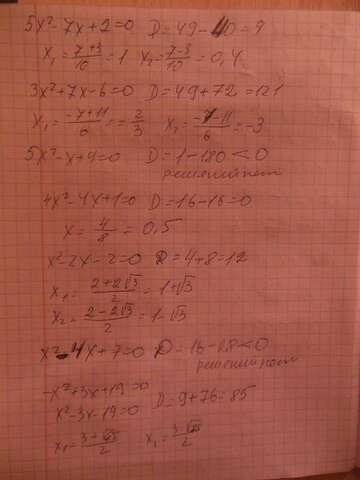 5x²-7x+2=0 D=49-40=9
x₁=(7+3)/10=1 x₂=(7-3)/10=0,4
3x²+7x-6=0 D=49+72=121
x₁=(-7+11)/6==2/3 x₂=(-7-11)/6=-3
5x²-x+9=0 D=1-180<0
решений нет
4x²-4x+1=0 D=16-16=0
x=4/8=0,5
x²-2x-2=0 D=4+8=12
x₁=(2+2√3)/2=1+√3
x₂=(2-2√3)/2=1-√3
x²-4x+7=0 D=16-28<0
решений нет
-x²+3x+19=0
x²-3x-19=0 D=9+76=85